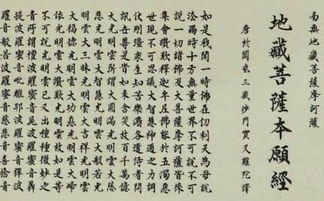 南無地藏菩薩摩訶薩
地藏菩薩本願經
唐于闐國三藏沙門實叉難陀譯
如是我聞一時佛在忉利天為母說
法爾時十方無量世界不可說不可
說一切諸佛及大菩薩摩訶薩皆來
集會讚歎釋迦牟尼佛能於五濁惡
世現不可思議大智慧神通之力調
伏剛強眾生知苦樂法各遣侍者問
訊世尊是時如來含笑放百千萬億
大光明雲所謂大圓滿光明雲大慈
悲光明雲大智慧光明雲大般若光
明雲大三昧光明雲大吉祥光明雲
大福德光明雲大功德光明雲大歸
依光明雲大讚歎光明雲放如是等
不可說光明雲已又出種種微妙之
音所謂檀波羅蜜音尸波羅蜜音羼
提波羅蜜音毗離耶波羅蜜音禪波
羅蜜音般若波羅蜜音慈悲音喜捨音